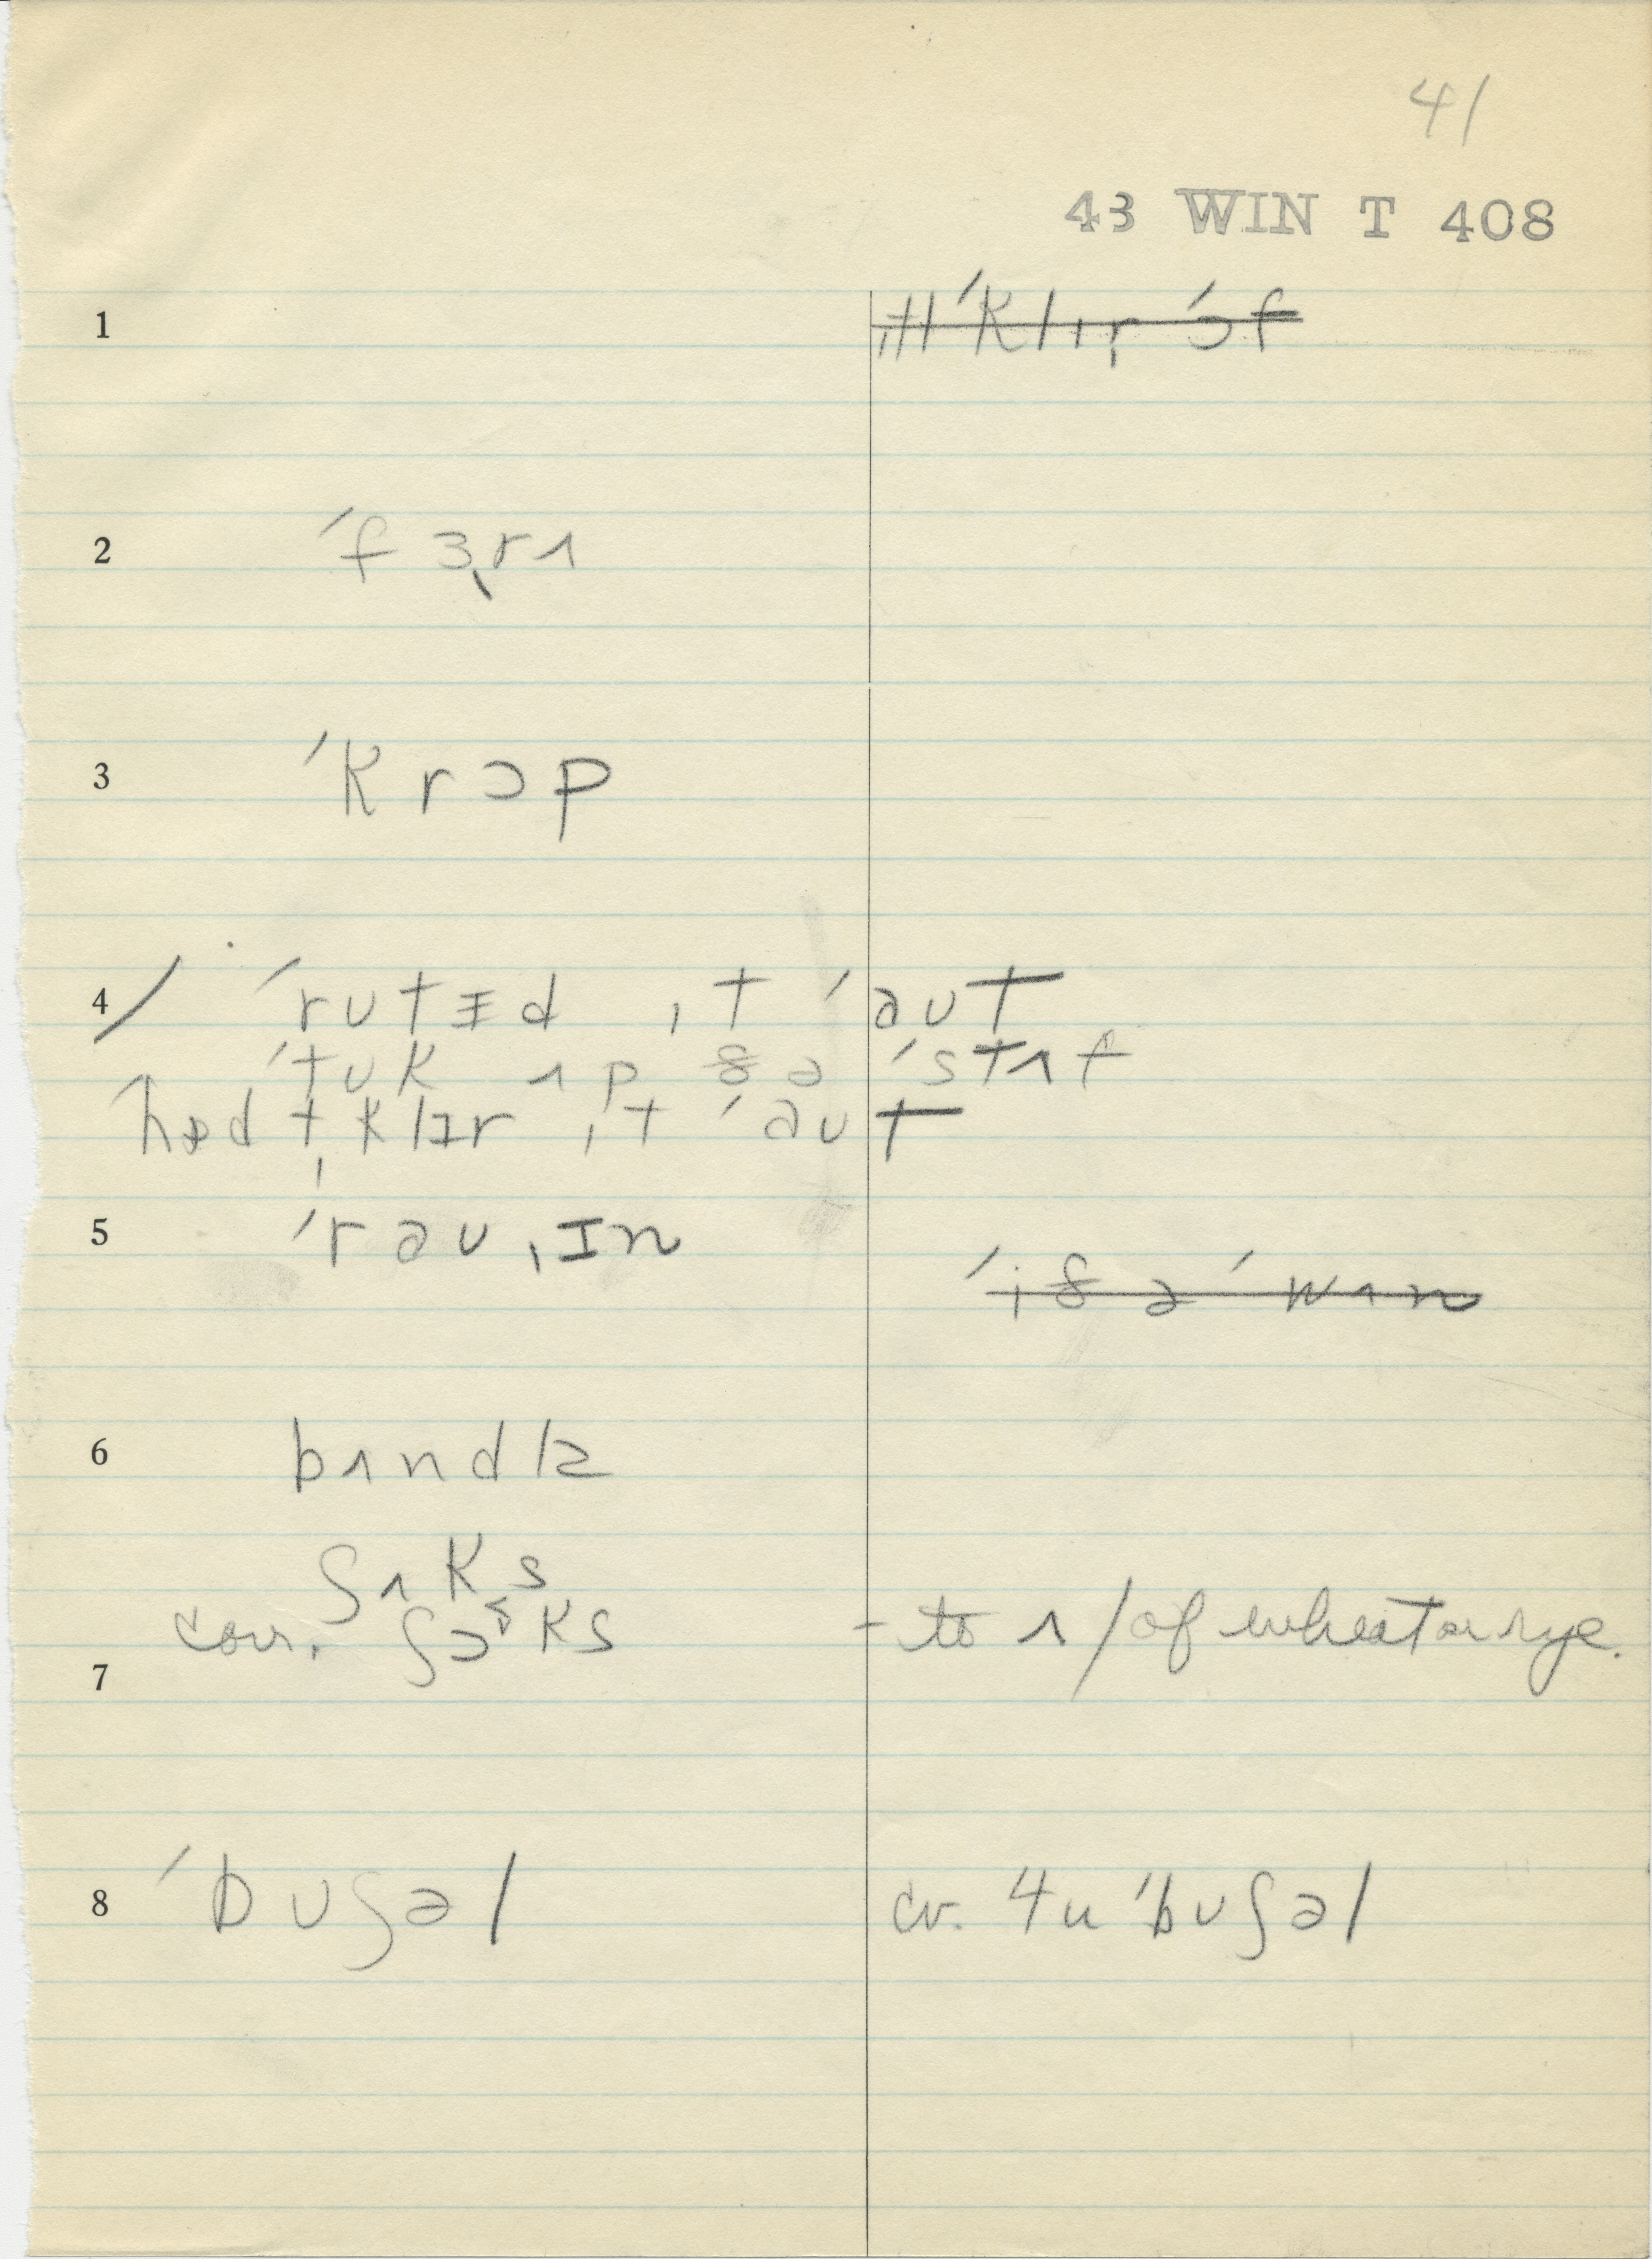 41
43 WIN T 408
1 ɪtl ˈklɪr ˈɔf
2 ˈfɜrʌ
3 ˈkrɔp
4/ ˈrutɪd ɪt ˈaʊt
ˈtʊk ʌp ðə ˈstʌf
hæd t klɪr ɪt ˈaʊt
5 ˈraʊɪn
ˈiðə ˈwʌn
6 bʌndlz
ʃʌks
7 corr. ʃɔks - to ʌ / of wheat or rye.
8 ˈbuʃəl cv. 4u ˈbuʃəl